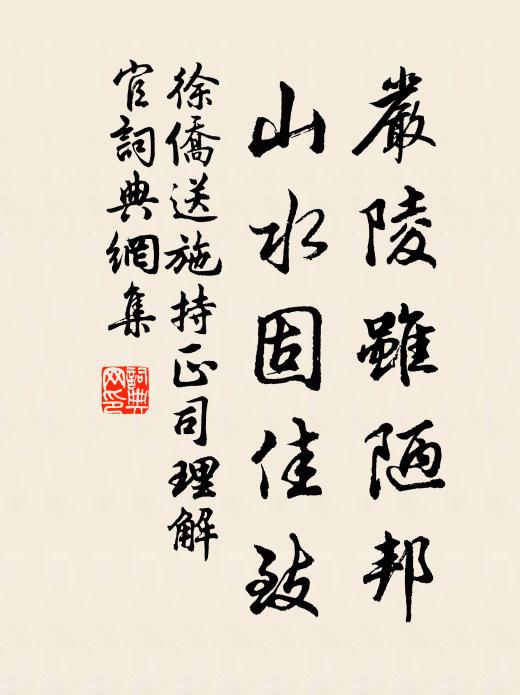 嚴陵雖陋邦
山水固佳致
徐僑送施持正司理解
官詞典網集
詞典
网印